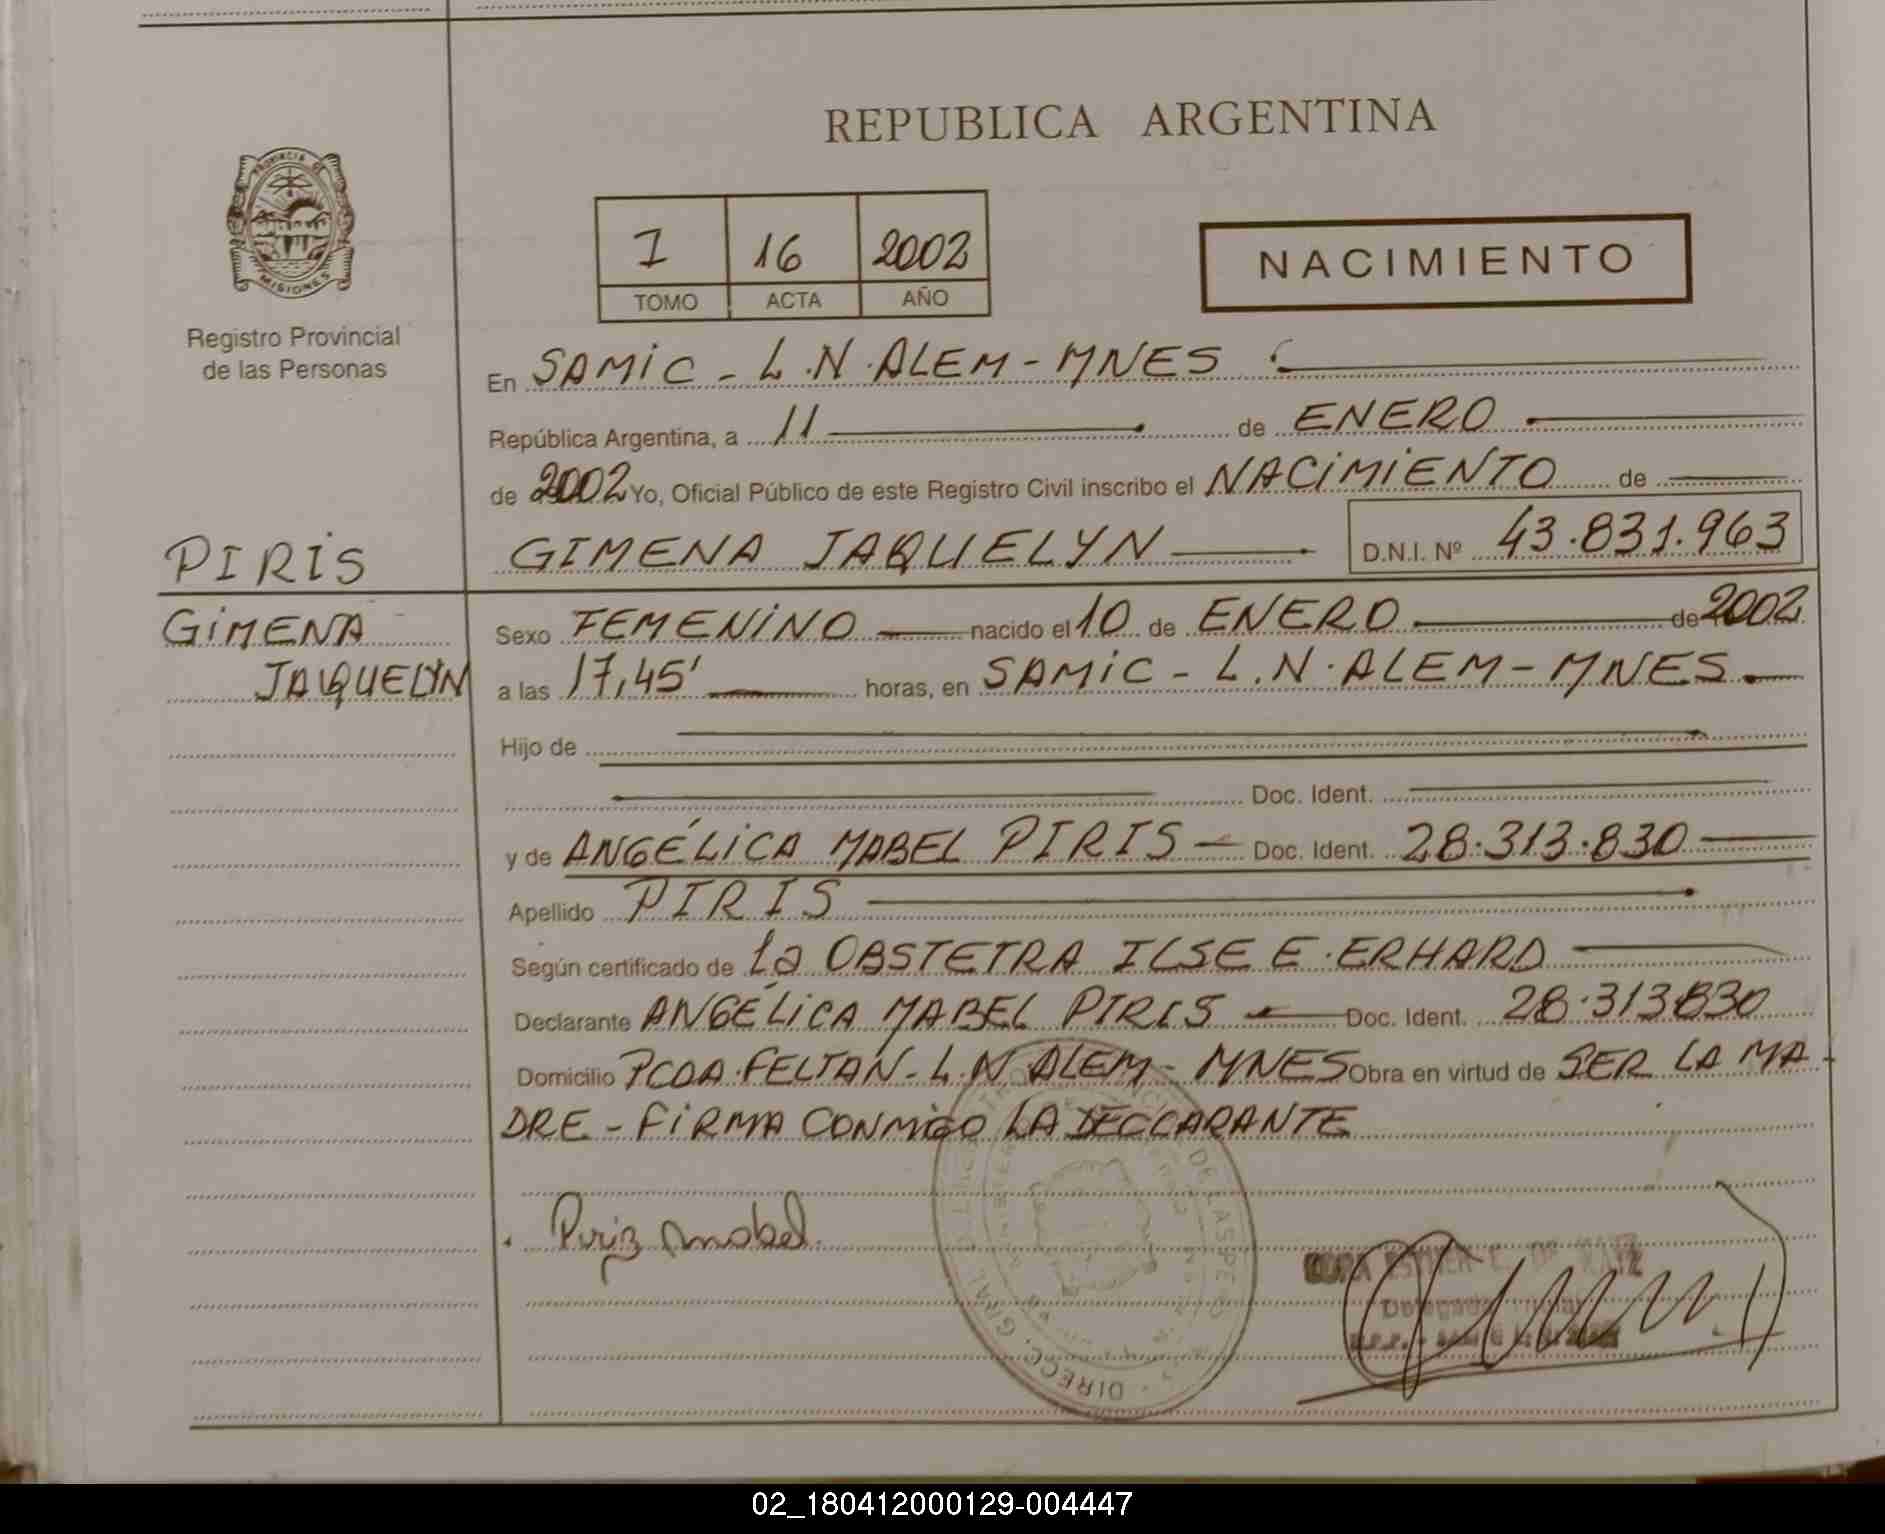 REPUBLICA ARGENTINA
PROVINCIA DE
MISIONES
Registro Provincial
de las Personas
I 16 2002
TOMO ACTA AÑO
NACIMIENTO
En SAMIC - L.N.ALEM - MNES
República Argentina, a 11 de ENERO
de 2002 Yo, Oficial Público de este Registro Civil inscribo el NACIMIENTO de
GIMENA JAQUELYN D.N.I. Nº 43.831.963
PIRIS
GIMENA
JAQUELYN
Sexo FEMENINO nacido el 10 de ENERO de 2002
a las 17,45' horas, en SAMIC - L.N.ALEM - MNES.
Hijo de
Doc. Ident.
y de ANGÉLICA MABEL PIRIS - Doc. Ident. 28.313.830
Apellido PIRIS
Según certificado de la OBSTETRA ILSE E. ERHARD
Declarante ANGÉLICA MABEL PIRIS Doc. Ident. 28.313830
Domicilio PCDA. FELTAN - L.N ALEM - MNES Obra en virtud de SER LA MA-
DRE - FIRMA CONMIGO LA DECLARANTE
Piriz mabel
02_180412000129-004447